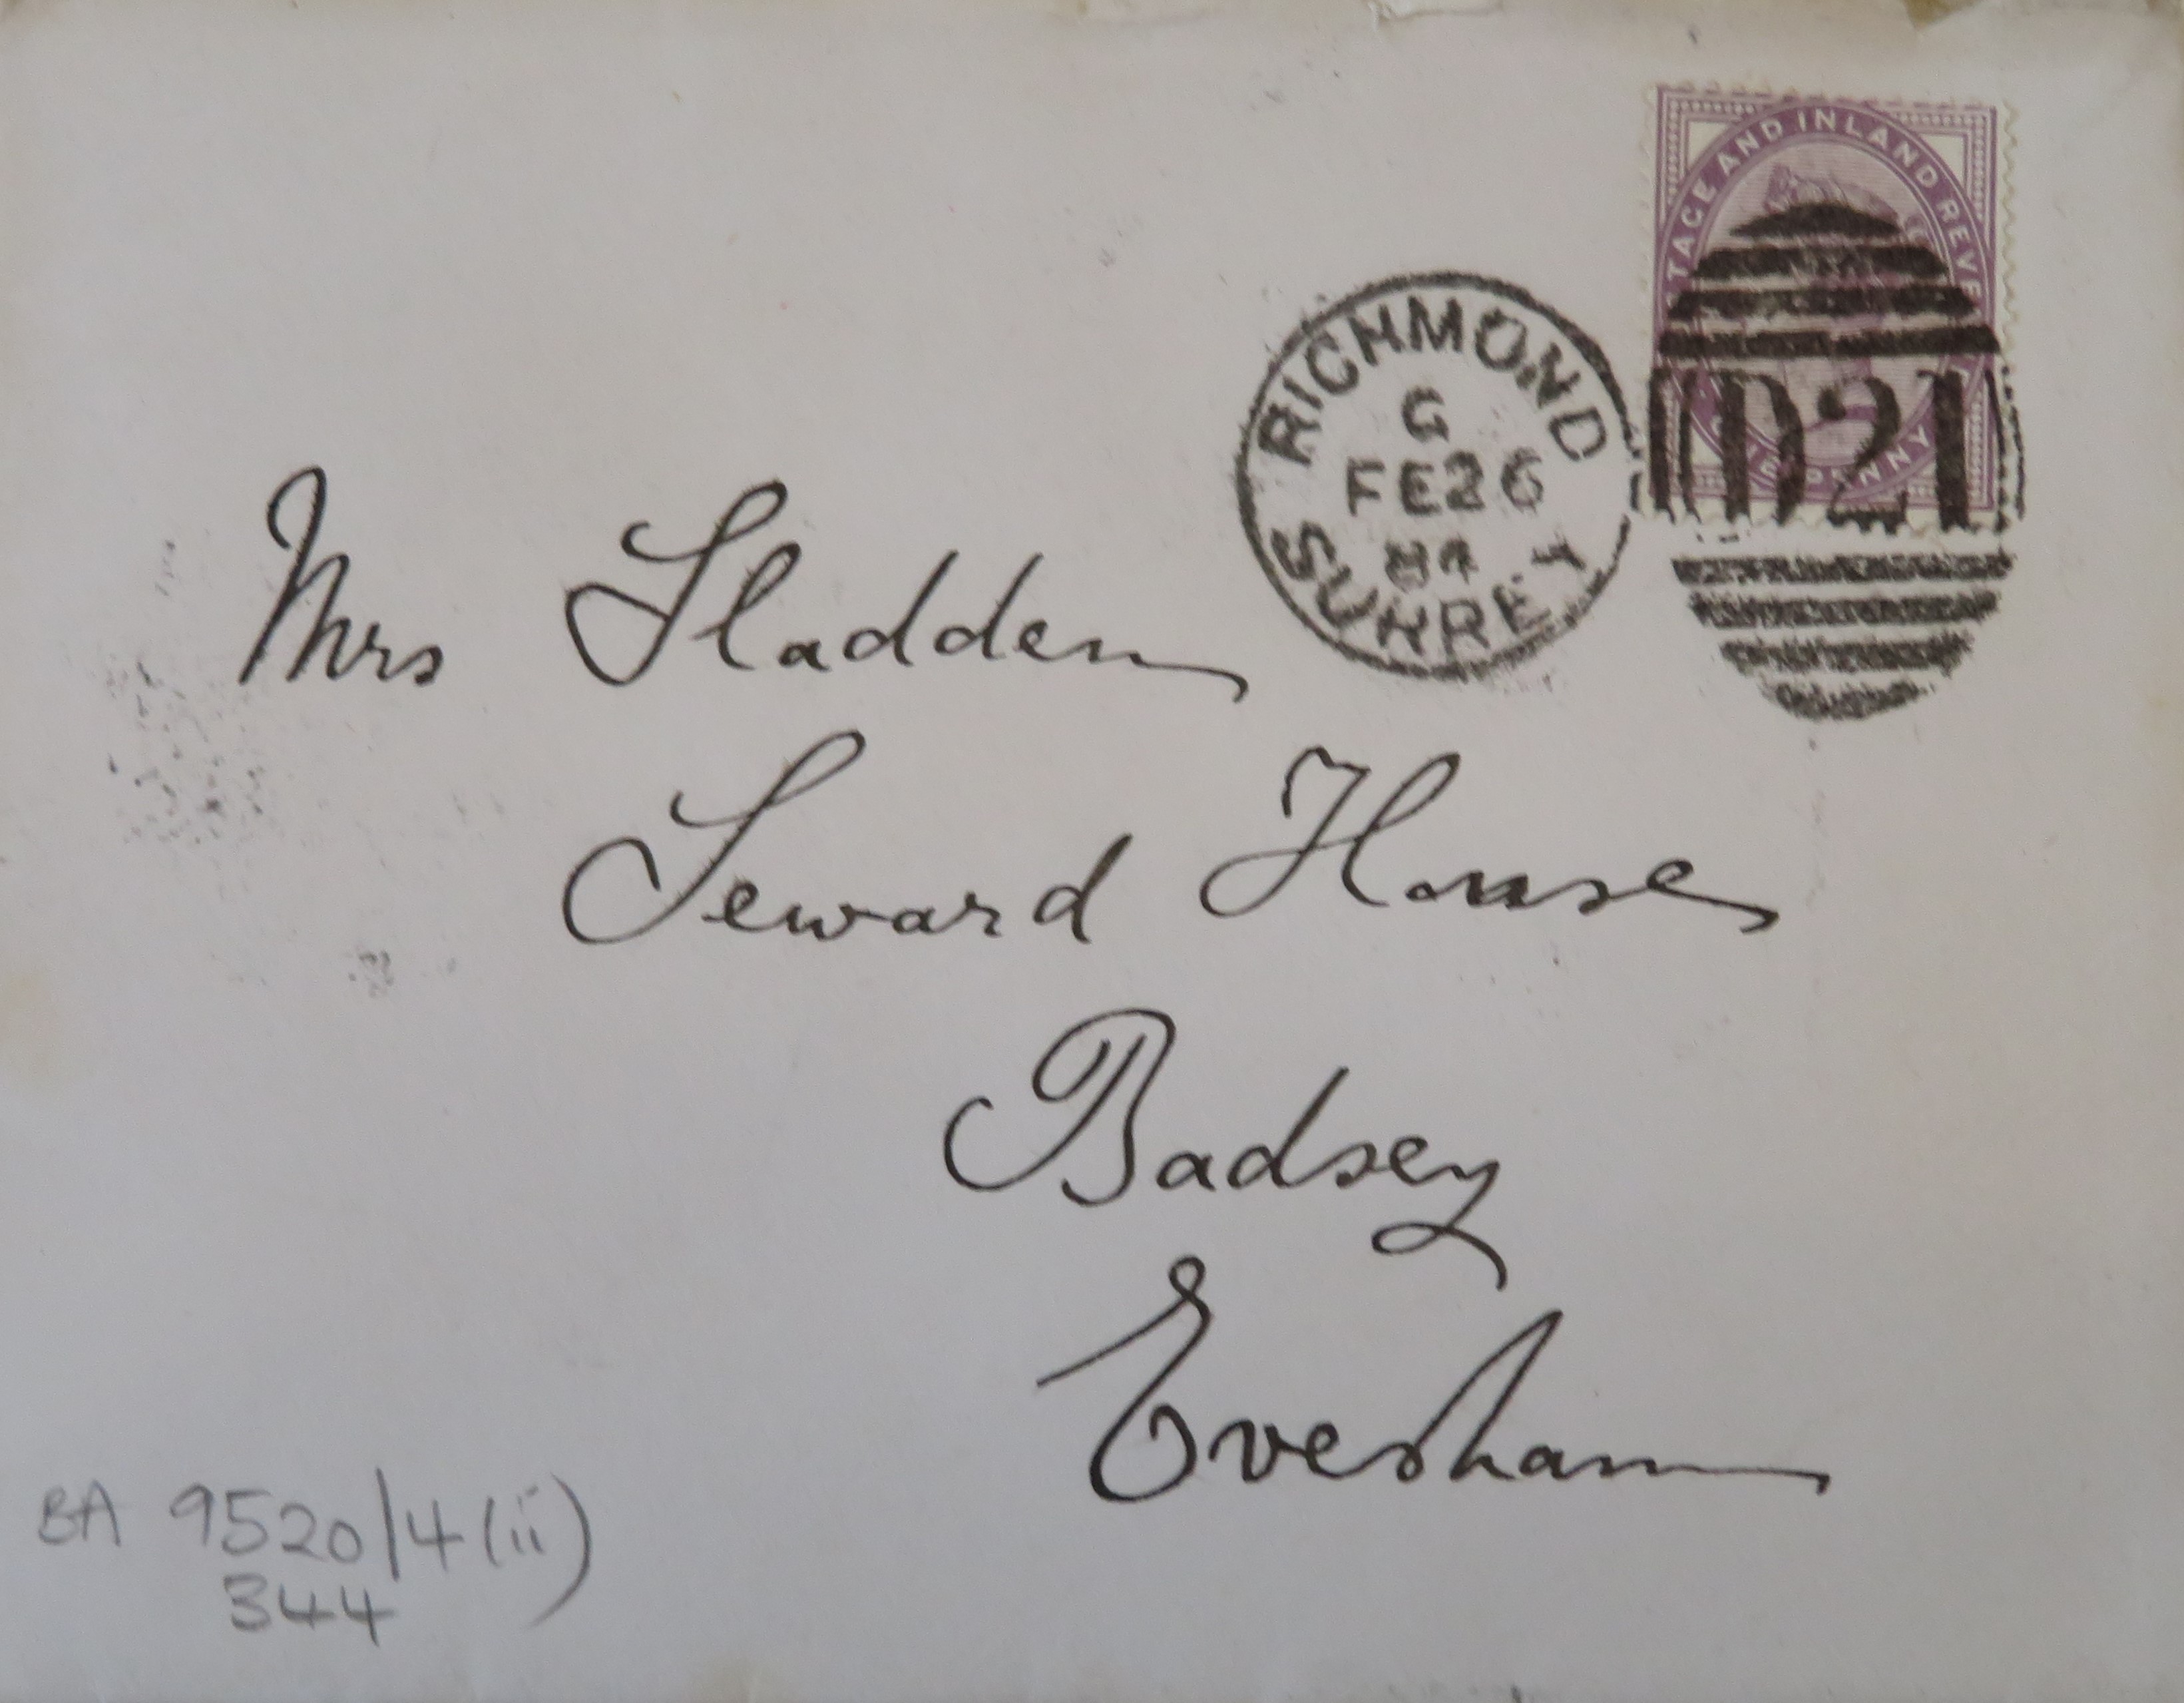 TAGE AND INLAND REVE
PENNY
D21
RICHMOND
G
FE 26
SURREY
Mrs Sladden
Seward House
Badsey
Evesham
BA 9520/4 (ii)
344